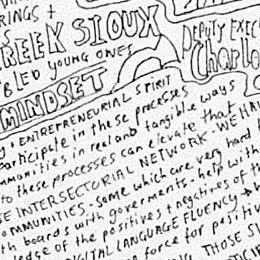 RINGS +
REEK SIOUX
DEPUTY EXEC
BLED YOUNG ONES
Charlo
MINDSET
y, ENTREPRENEURIAL SPIRIT
participate in these processes
mmunities in real and tangible ways
to these processes can elevate that
SE INTERSECTORIAL NETWORK - WE HA
OMMUNITIES - some which are very hard
th boards with goverments - help with
ledge of the positives + negatives of th
DIGITAL LANGUAGE FLUENCY
force for positiv
THOSE SU